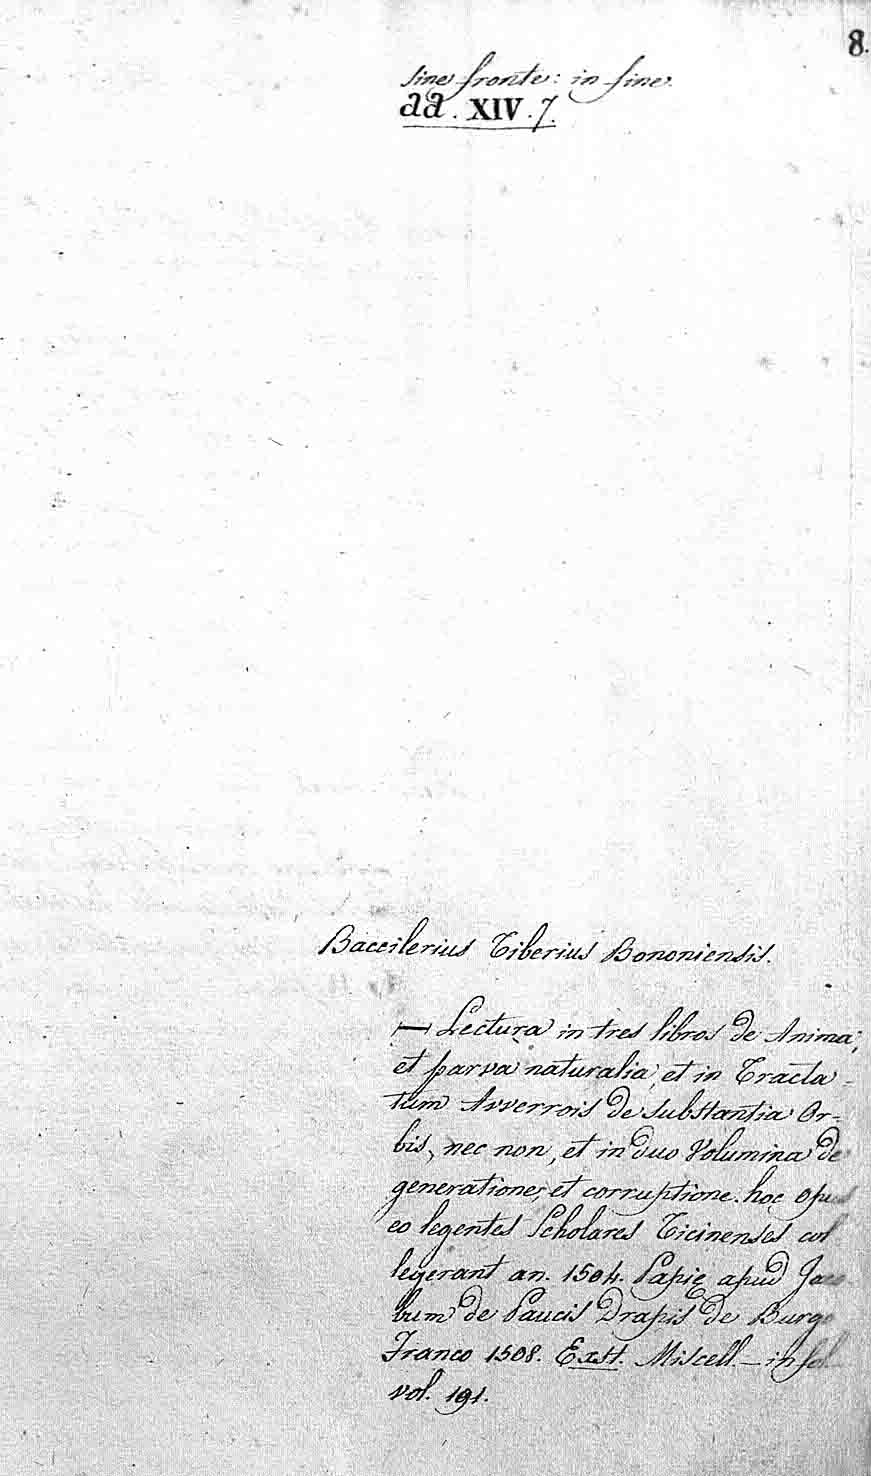 8.
sine fronte: in fine.
aa. XIV. 7.
Baccilerius Tiberius Bononiensis.
— Lectura in tres libros de Anima;
et parva naturalia; et in Tracta-
tum Averrois de substantia Or-
bis, nec non, et in duo Volumina de
generatione, et corruptione. hoc opus
eo legentes Scholares Ticinenses col
legerant an. 1504. Papię apud Jaco
bum de Paucis Drapis de Burgo
Franco 1508. Exst. Miscell. — in fol.
vol. 191.